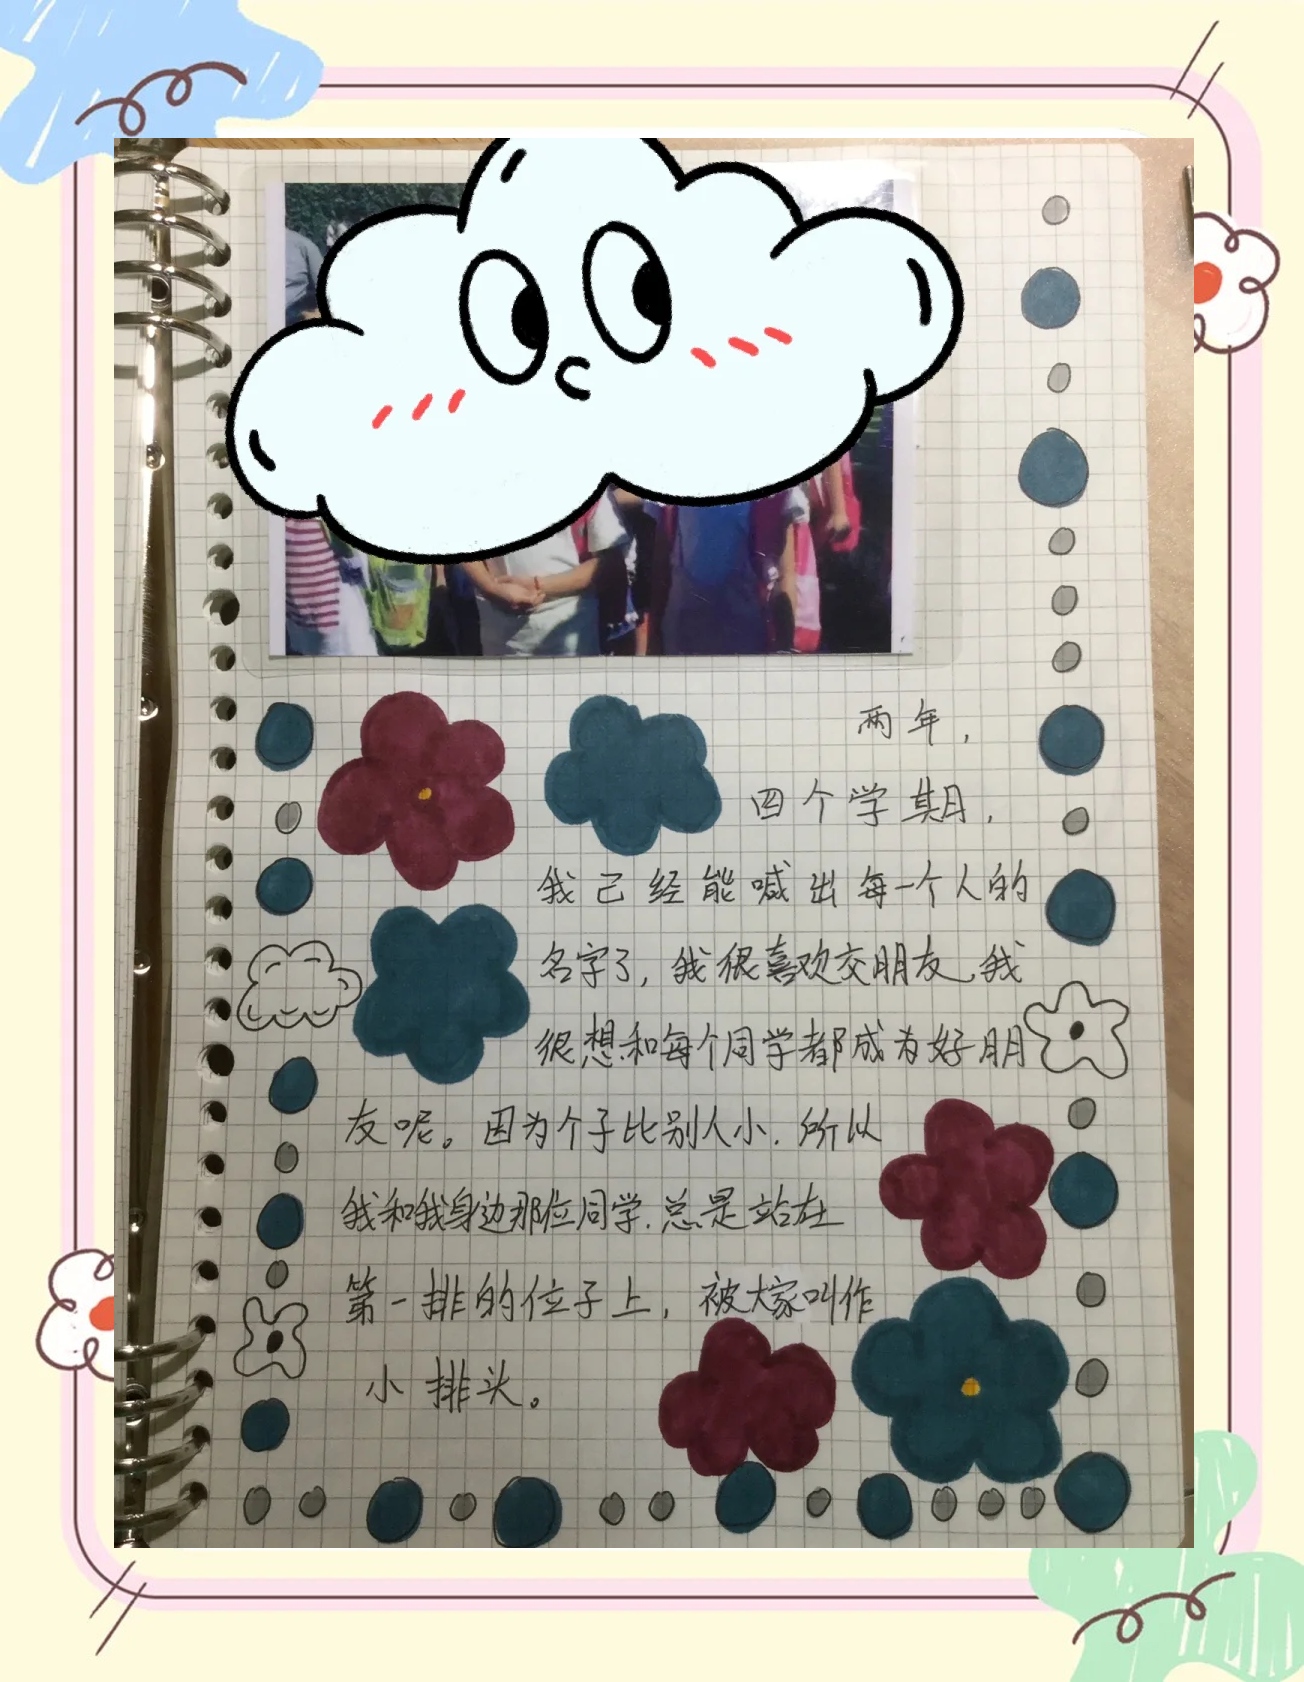 两年，
四个学期，
我已经能喊出每一个人的
名字了，我很喜欢交朋友，我
很想和每个同学都成为好朋
友呢。因为个子比别人小，所以
我和我身边那位同学，总是站在
第一排的位子上，被大家叫作
小排头。